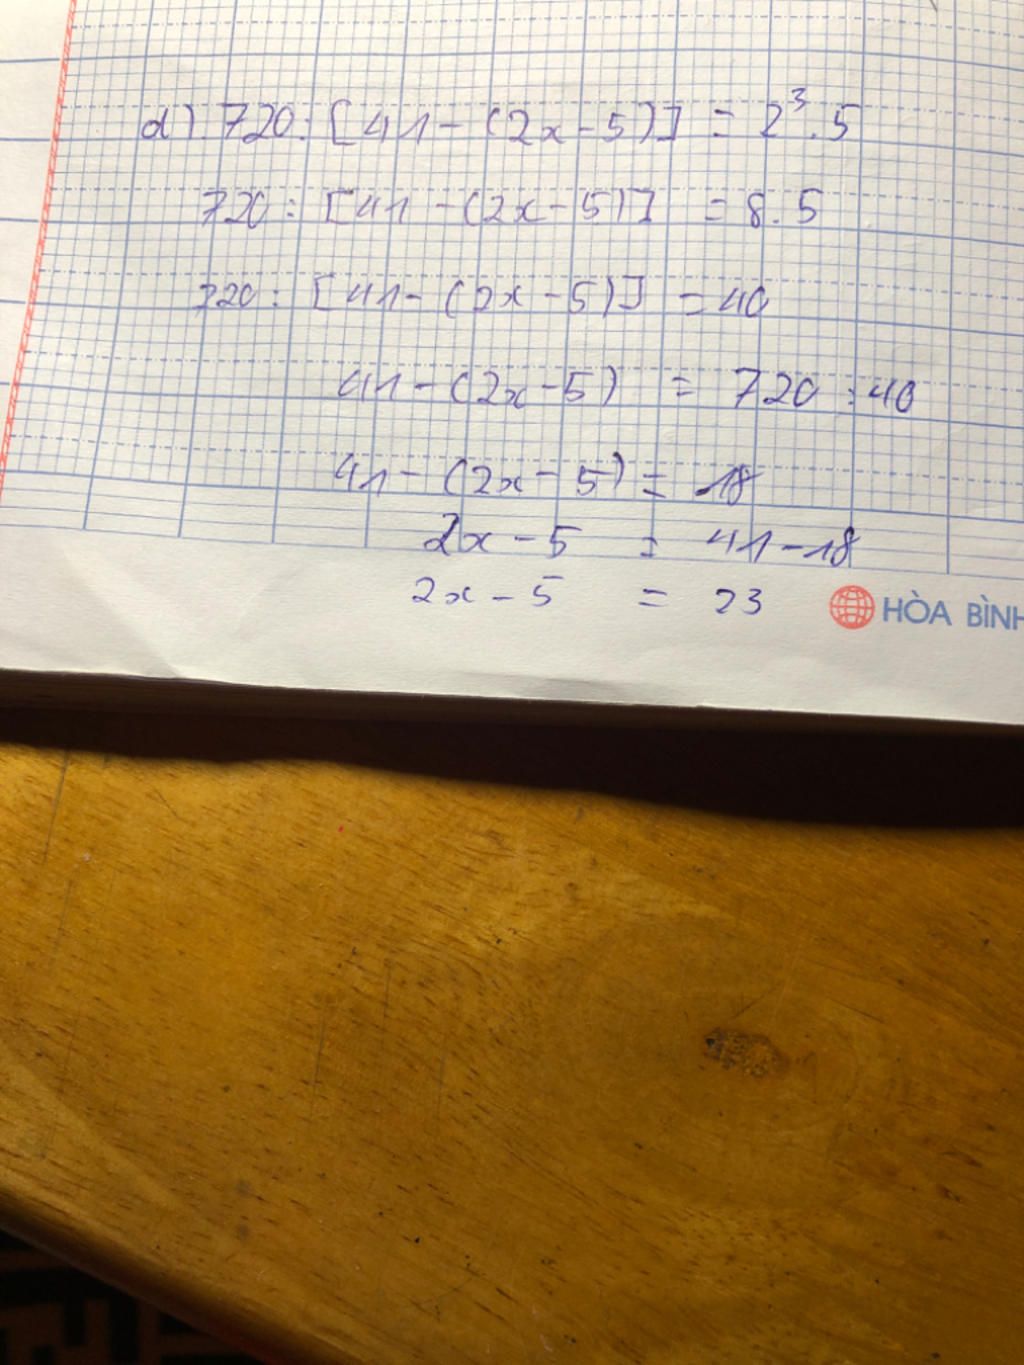 d) 720: [41-(2x-5)] = 2³.5
720: [41-(2x-5)] = 8.5
720: [41-(2x-5)] = 40
41-(2x-5) = 720:40
41-(2x-5) = 18
2x-5 = 41-18
2x-5 = 23
HÒA BÌNH